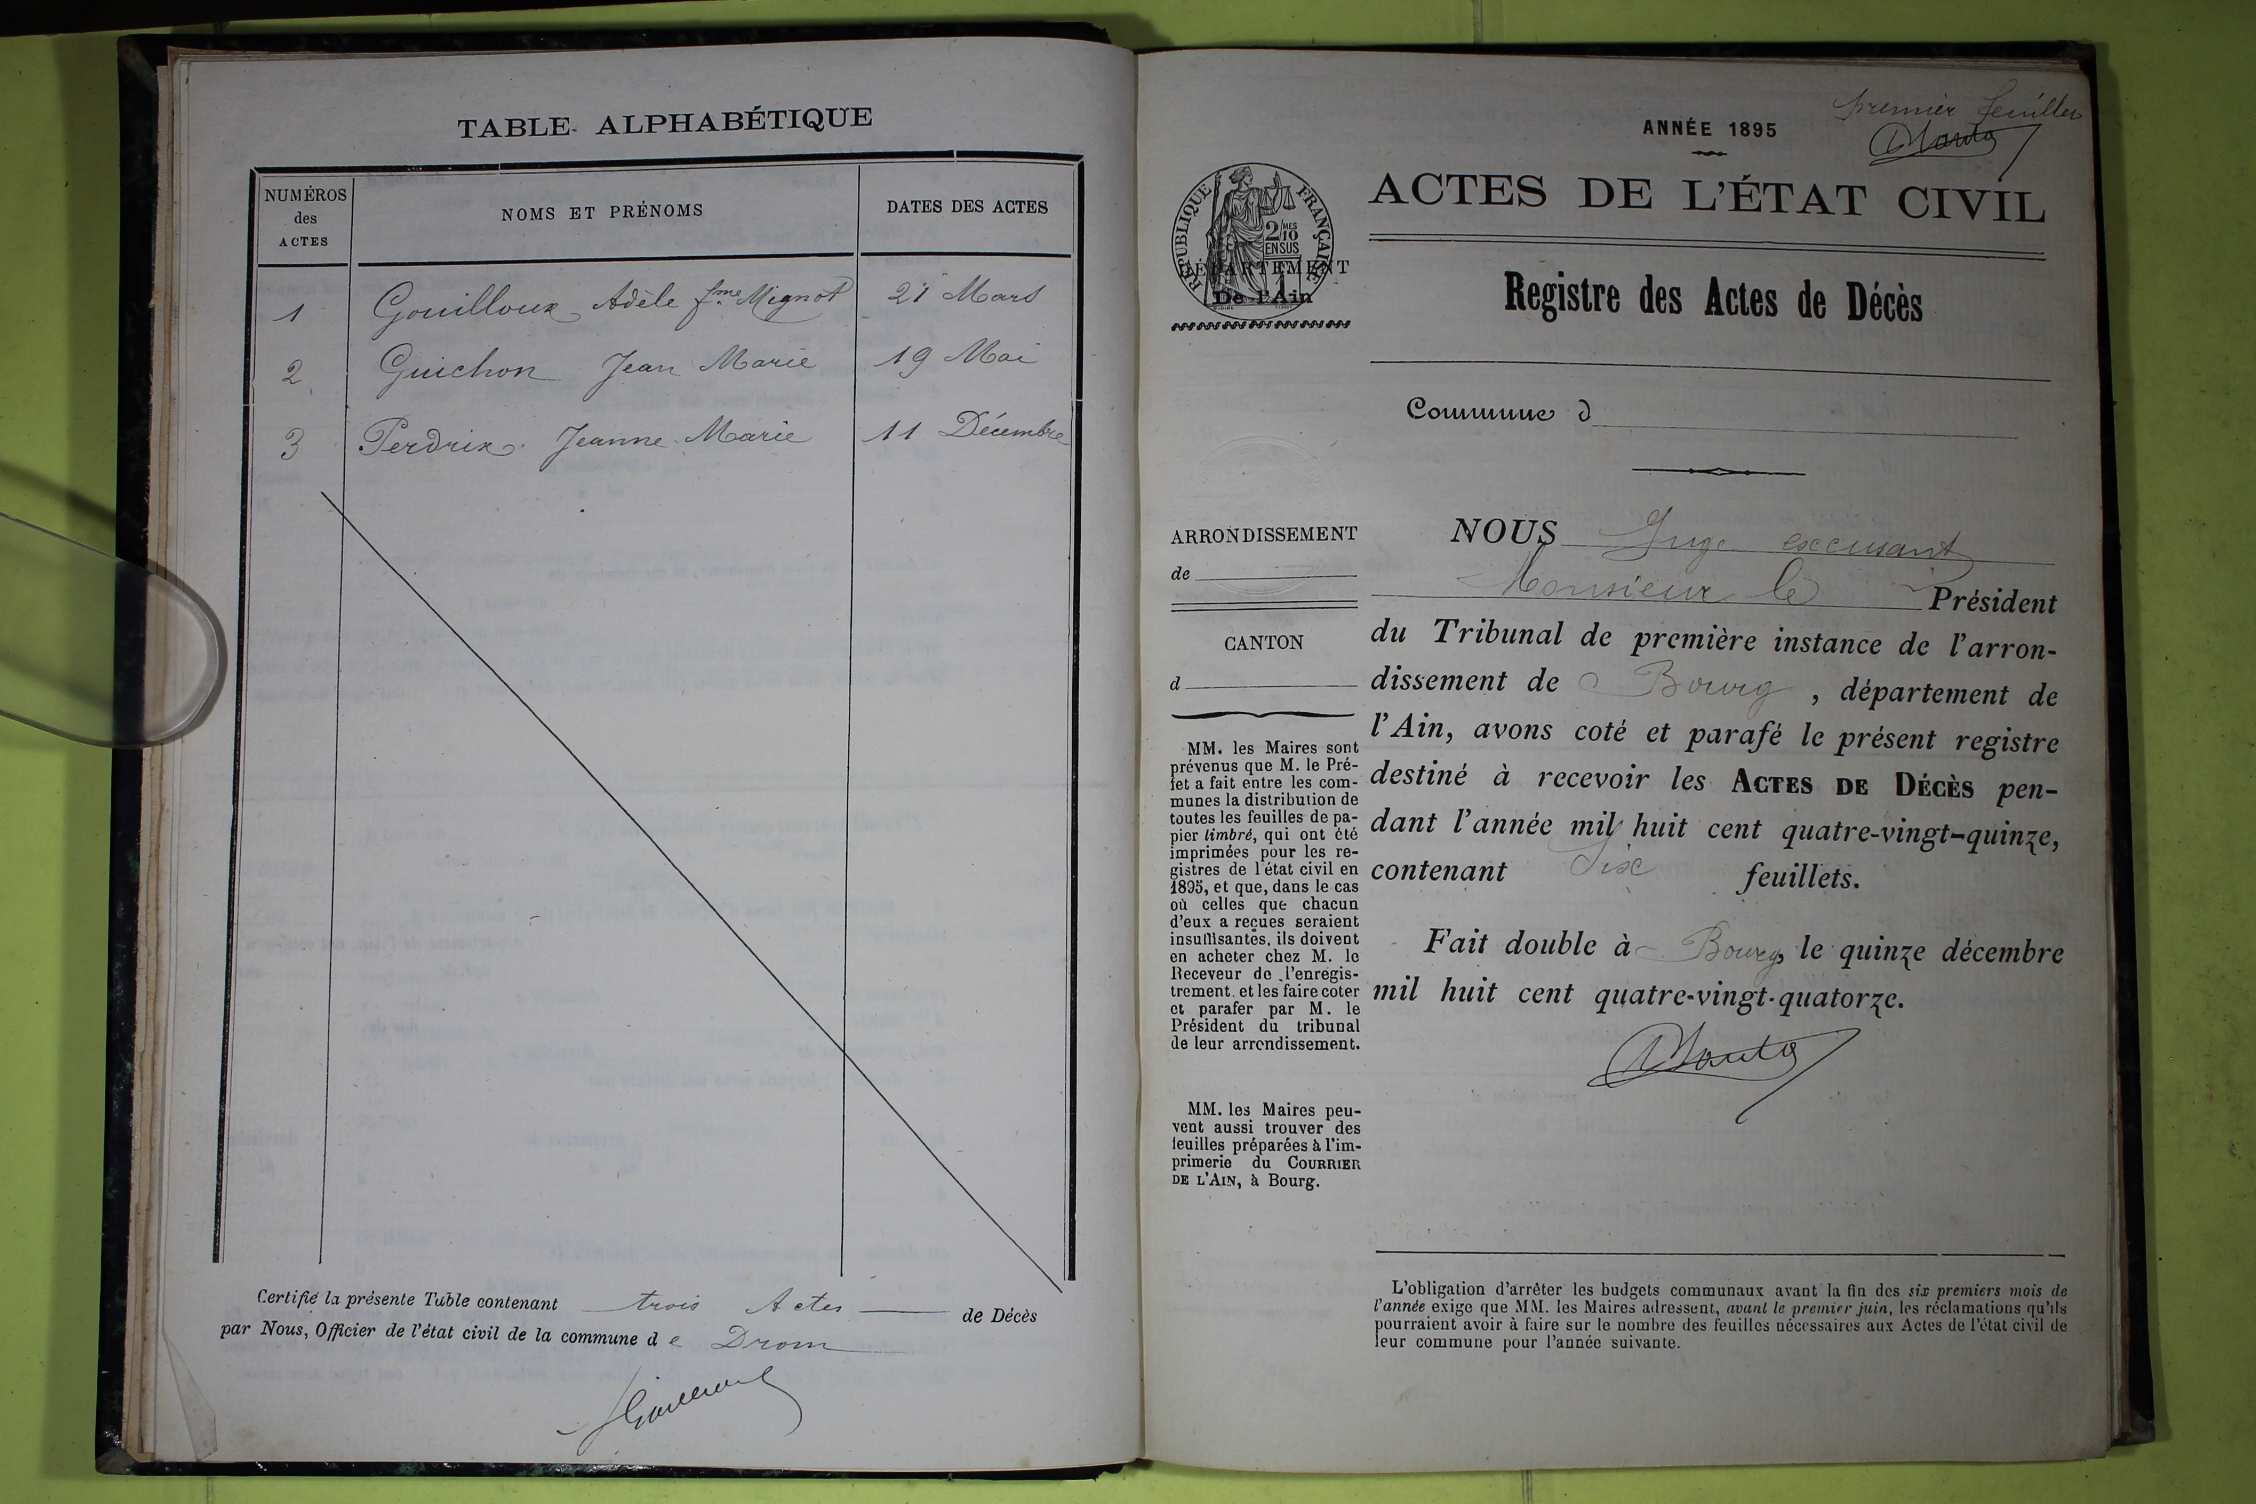 TABLE ALPHABÉTIQUE
NUMÉROS
des
ACTES
NOMS ET PRÉNOMS
DATES DES ACTES
1 Gouilloux Adèle fme Mignot 21 Mars
2 Guichon Jean Marie 19 Mai
3 Perdrix Jeanne Marie 11 Décembre
Certifié la présente Table contenant trois Actes de Décès
par Nous, Officier de l'état civil de la commune de Drom
premier feuillet
ANNÉE 1895
ACTES DE L'ÉTAT CIVIL
RÉPUBLIQUE FRANÇAISE
2/10 MES
EN SUS
DÉPARTEMENT
De l'Ain
Registre des Actes de Décès
Commune d
ARRONDISSEMENT
de
CANTON
d
MM. les Maires sont
prévenus que M. le Pré-
fet a fait entre les com-
munes la distribution de
toutes les feuilles de pa-
pier timbré, qui ont été
imprimées pour les re-
gistres de l'état civil en
1895, et que, dans le cas
où celles que chacun
d'eux a reçues seraient
insuffisantes, ils doivent
en acheter chez M. le
Receveur de l'enregis-
trement, et les faire coter
et parafer par M. le
Président du tribunal
de leur arrondissement.
MM. les Maires peu-
vent aussi trouver des
feuilles préparées à l'im-
primerie du COURRIER
DE L'AIN, à Bourg.
NOUS Juge excusant
Monsieur le Président
du Tribunal de première instance de l'arron-
dissement de Bourg, département de
l'Ain, avons coté et parafé le présent registre
destiné à recevoir les ACTES DE DÉCÈS pen-
dant l'année mil huit cent quatre-vingt-quinze,
contenant Six feuillets.
Fait double à Bourg, le quinze décembre
mil huit cent quatre-vingt-quatorze.
L'obligation d'arrêter les budgets communaux avant la fin des six premiers mois de
l'année exige que MM. les Maires adressent, avant le premier juin, les réclamations qu'ils
pourraient avoir à faire sur le nombre des feuilles nécessaires aux Actes de l'état civil de
leur commune pour l'année suivante.